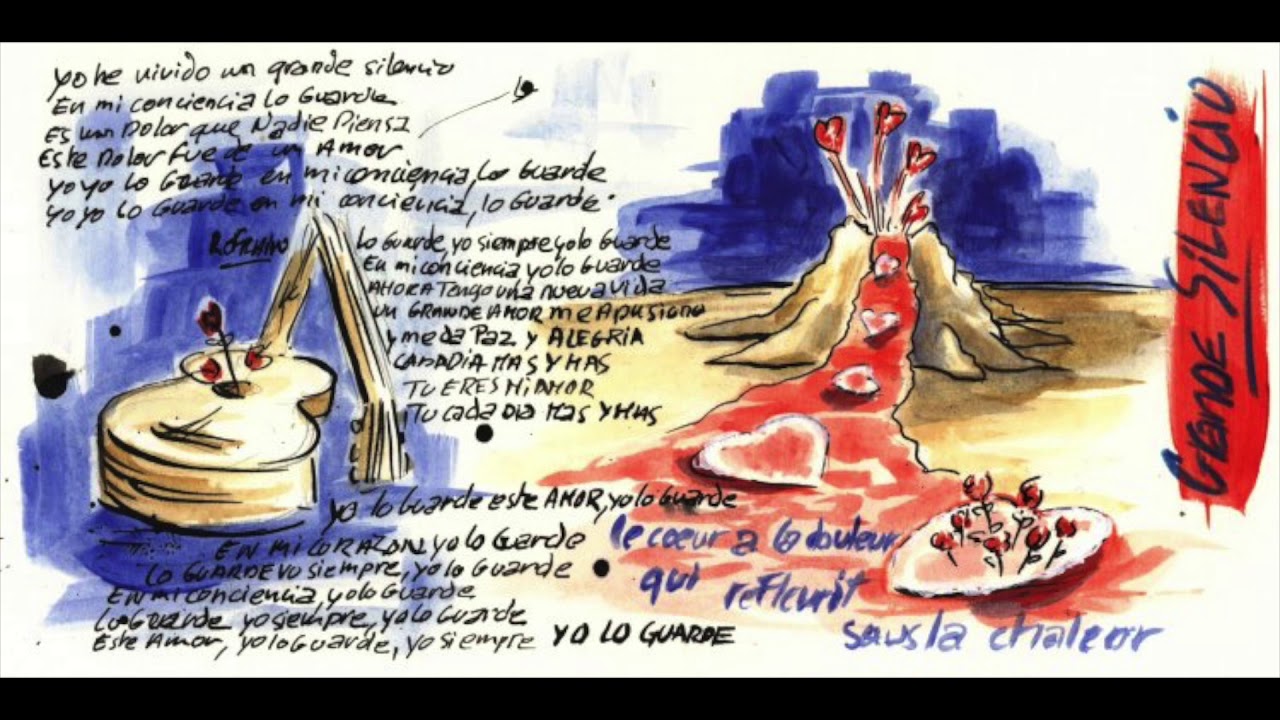 yo he vivido un grande silencio
En mi conciencia lo Guarde
Es un Dolor que Nadie Piensa
Este Dolor fue de un Amor
yo yo lo Guarde en mi conciencia, lo Guarde
yo yo lo Guarde en mi conciencia, lo Guarde
lo Guarde, yo siempre yo lo Guarde
En mi conciencia yo lo Guarde
AHORA Tengo una nueva vida
un GRANDE AMOR me Apasiona
y me da Paz y ALEGRIA
CADA DIA MAS Y MAS
TU ERES MI AMOR
Tu cada DIA MAS Y MAS
yo lo Guarde este AMOR, yo lo Guarde
EN MI CORAZON, yo lo Garde
lo GUARDE yo siempre, yo lo Guarde
En mi conciencia yo lo Guarde
lo Guarde yo siempre, yo lo Guarde
Este Amor, yo lo Guarde, yo siempre YO LO GUARDE
le coeur a la douleur
qui refleurit
sous la chaleur
GRANDE SILENCIO